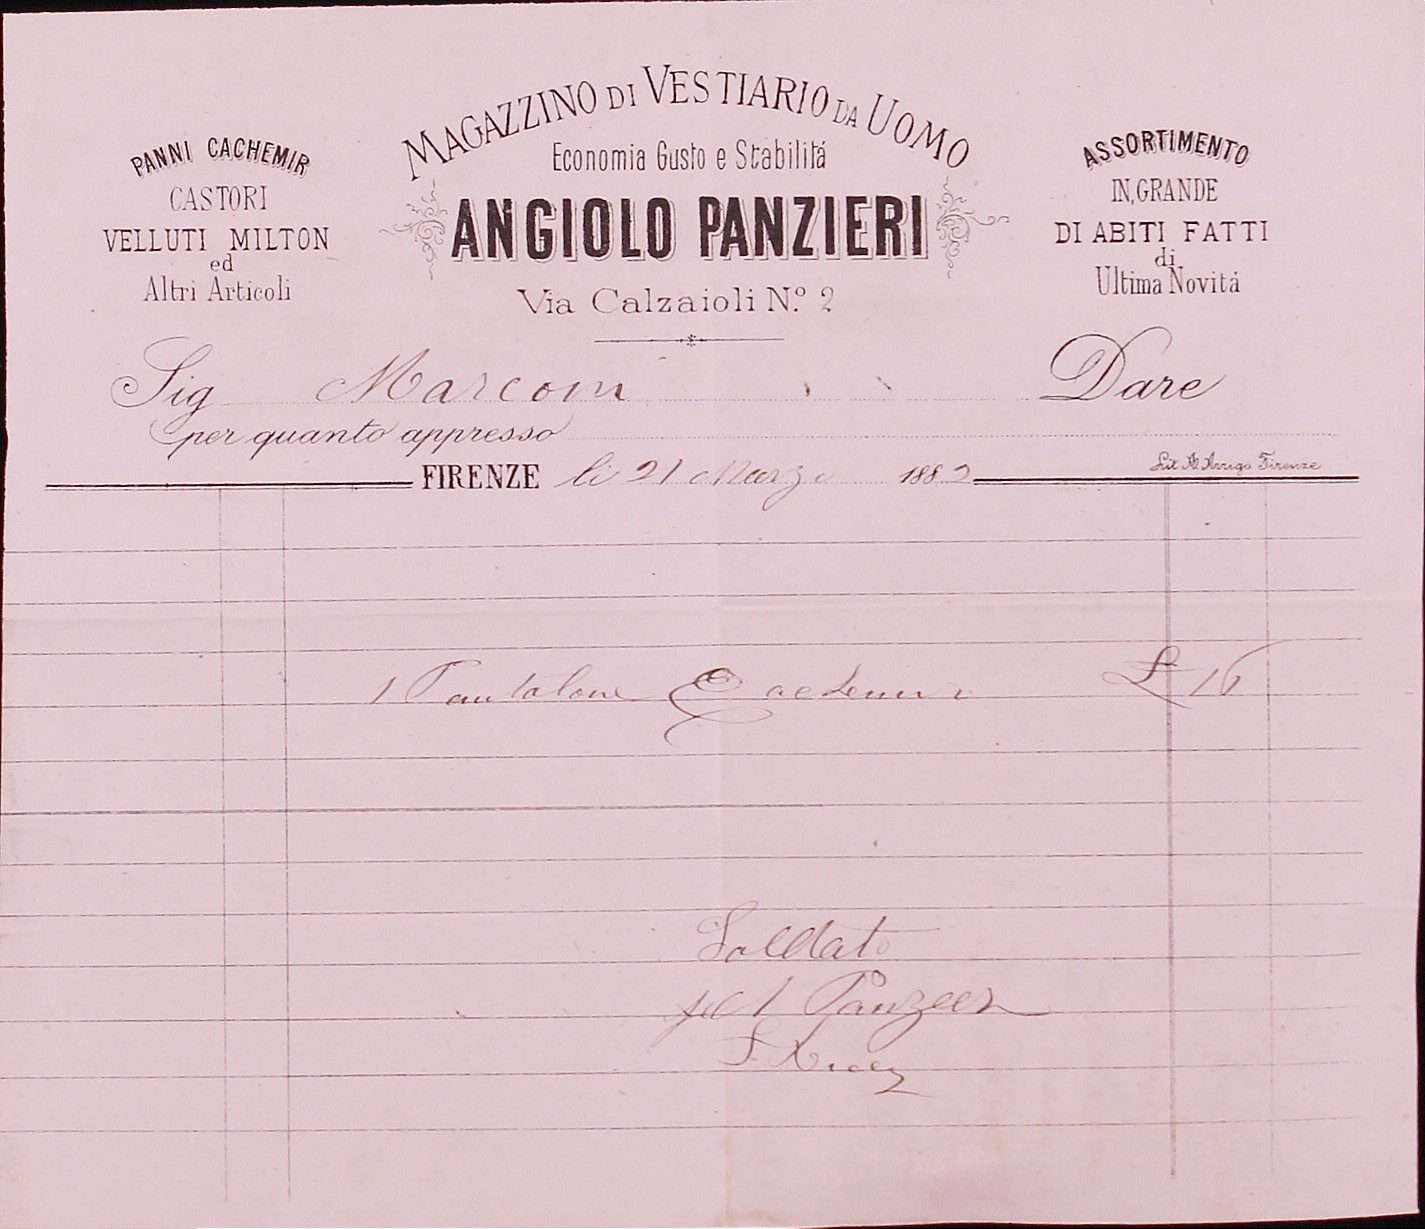 MAGAZZINO DI VESTIARIO DA UOMO
Economia Gusto e Stabilitá
ANGIOLO PANZIERI
Via Calzaioli N.º 2
PANNI CACHEMIR
CASTORI
VELLUTI MILTON
ed
Altri Articoli
ASSORTIMENTO
IN GRANDE
DI ABITI FATTI
di
Ultima Novitá
Sig Marconi Dare
per quanto appresso
Lit A. Arrigo Firenze
FIRENZE li 21 Marzo 1882
1 Pantalone Cachemir £ 16
Saldato
Panzieri